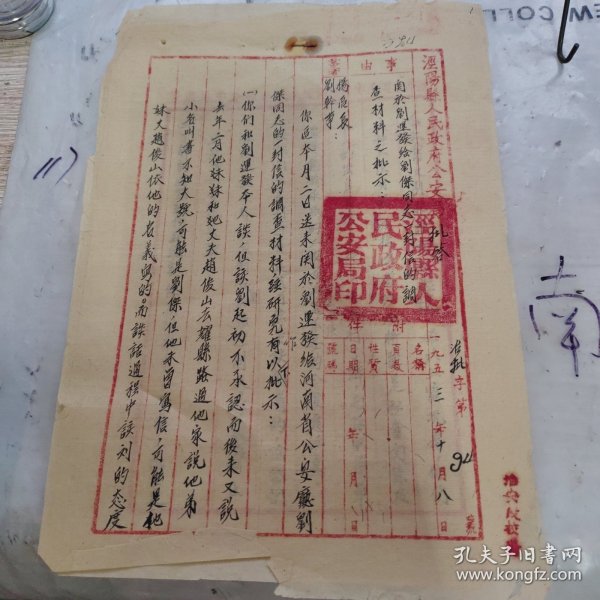 涇陽縣人民政府公安
批答
治批字第94號
一九五三年十月八日
附件
名稱
頁數
性質
日期
年月日
號碼
涇陽縣人民政府公安局印
事由
關於劉運發給劉傑同志一封信的調
查材料之批示:
楊區長
劉幹事:
你區本月二日送來關於劉運發給河南省公安廳劉
傑同志的一封信的調查材料經研究有以下批示:
(一)你們和劉運發本人談,但該劉起初不承認而後來又說
去年二月他妹妹和她丈夫趙俊山去耀縣路過他家說他弟
小名叫書不知大號,可能是劉傑,但他未曾寫信,可能是他
妹夫趙俊山依他的名義寫的,而談話過程中該劉的態度
南
EW COLL
孔夫子旧书网
www.kongfz.com